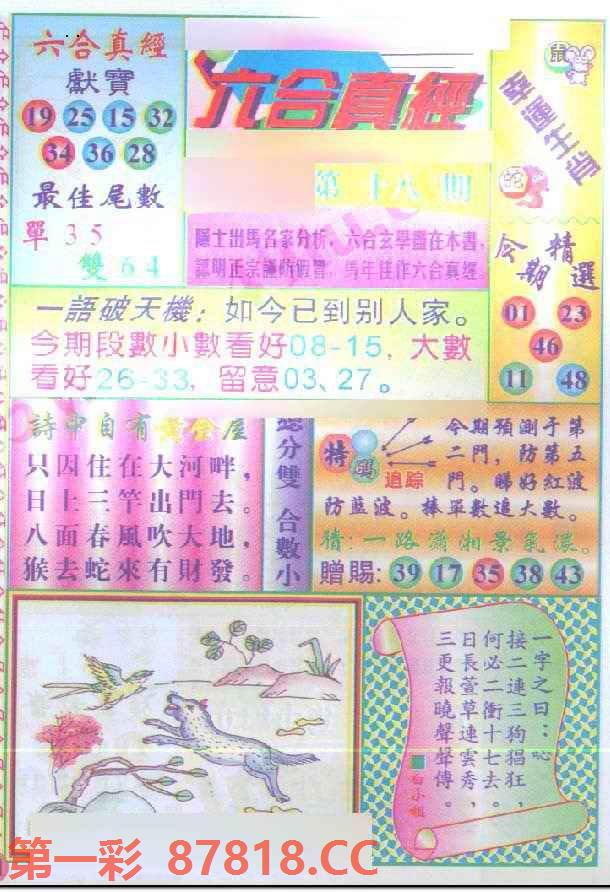 六合真經
獻寶
19 25 15 32
34 36 28
最佳尾數
單35
雙64
六合真經
第十八期
隱士出馬名家分析，六合玄學盡在本書，
認明正宗謹防假冒，馬年佳作六合真經。
鼠
幸運生肖
蛇
今期精選
01 23
46
11 48
一語破天機：如今已到别人家。
今期段數小數看好08-15，大數
看好26-33，留意03、27。
詩中自有黃金屋
只因住在大河畔，
日上三竿出門去。
八面春風吹大地，
猴去蛇來有財發。
總分雙 合數小
特碼
追踪
今期預測于第
二門，防第五
門。睇好紅波
防藍波。捧單數追大數。
猜：一路瀟湘景氣濃。
贈賜：39 17 35 38 43
一字之曰：吣
接二連三狗猖狂，
何必二衝十七去。
日長萱草連雲秀，
三更報曉聲聲傳。
白小姐
第一彩 87818.CC